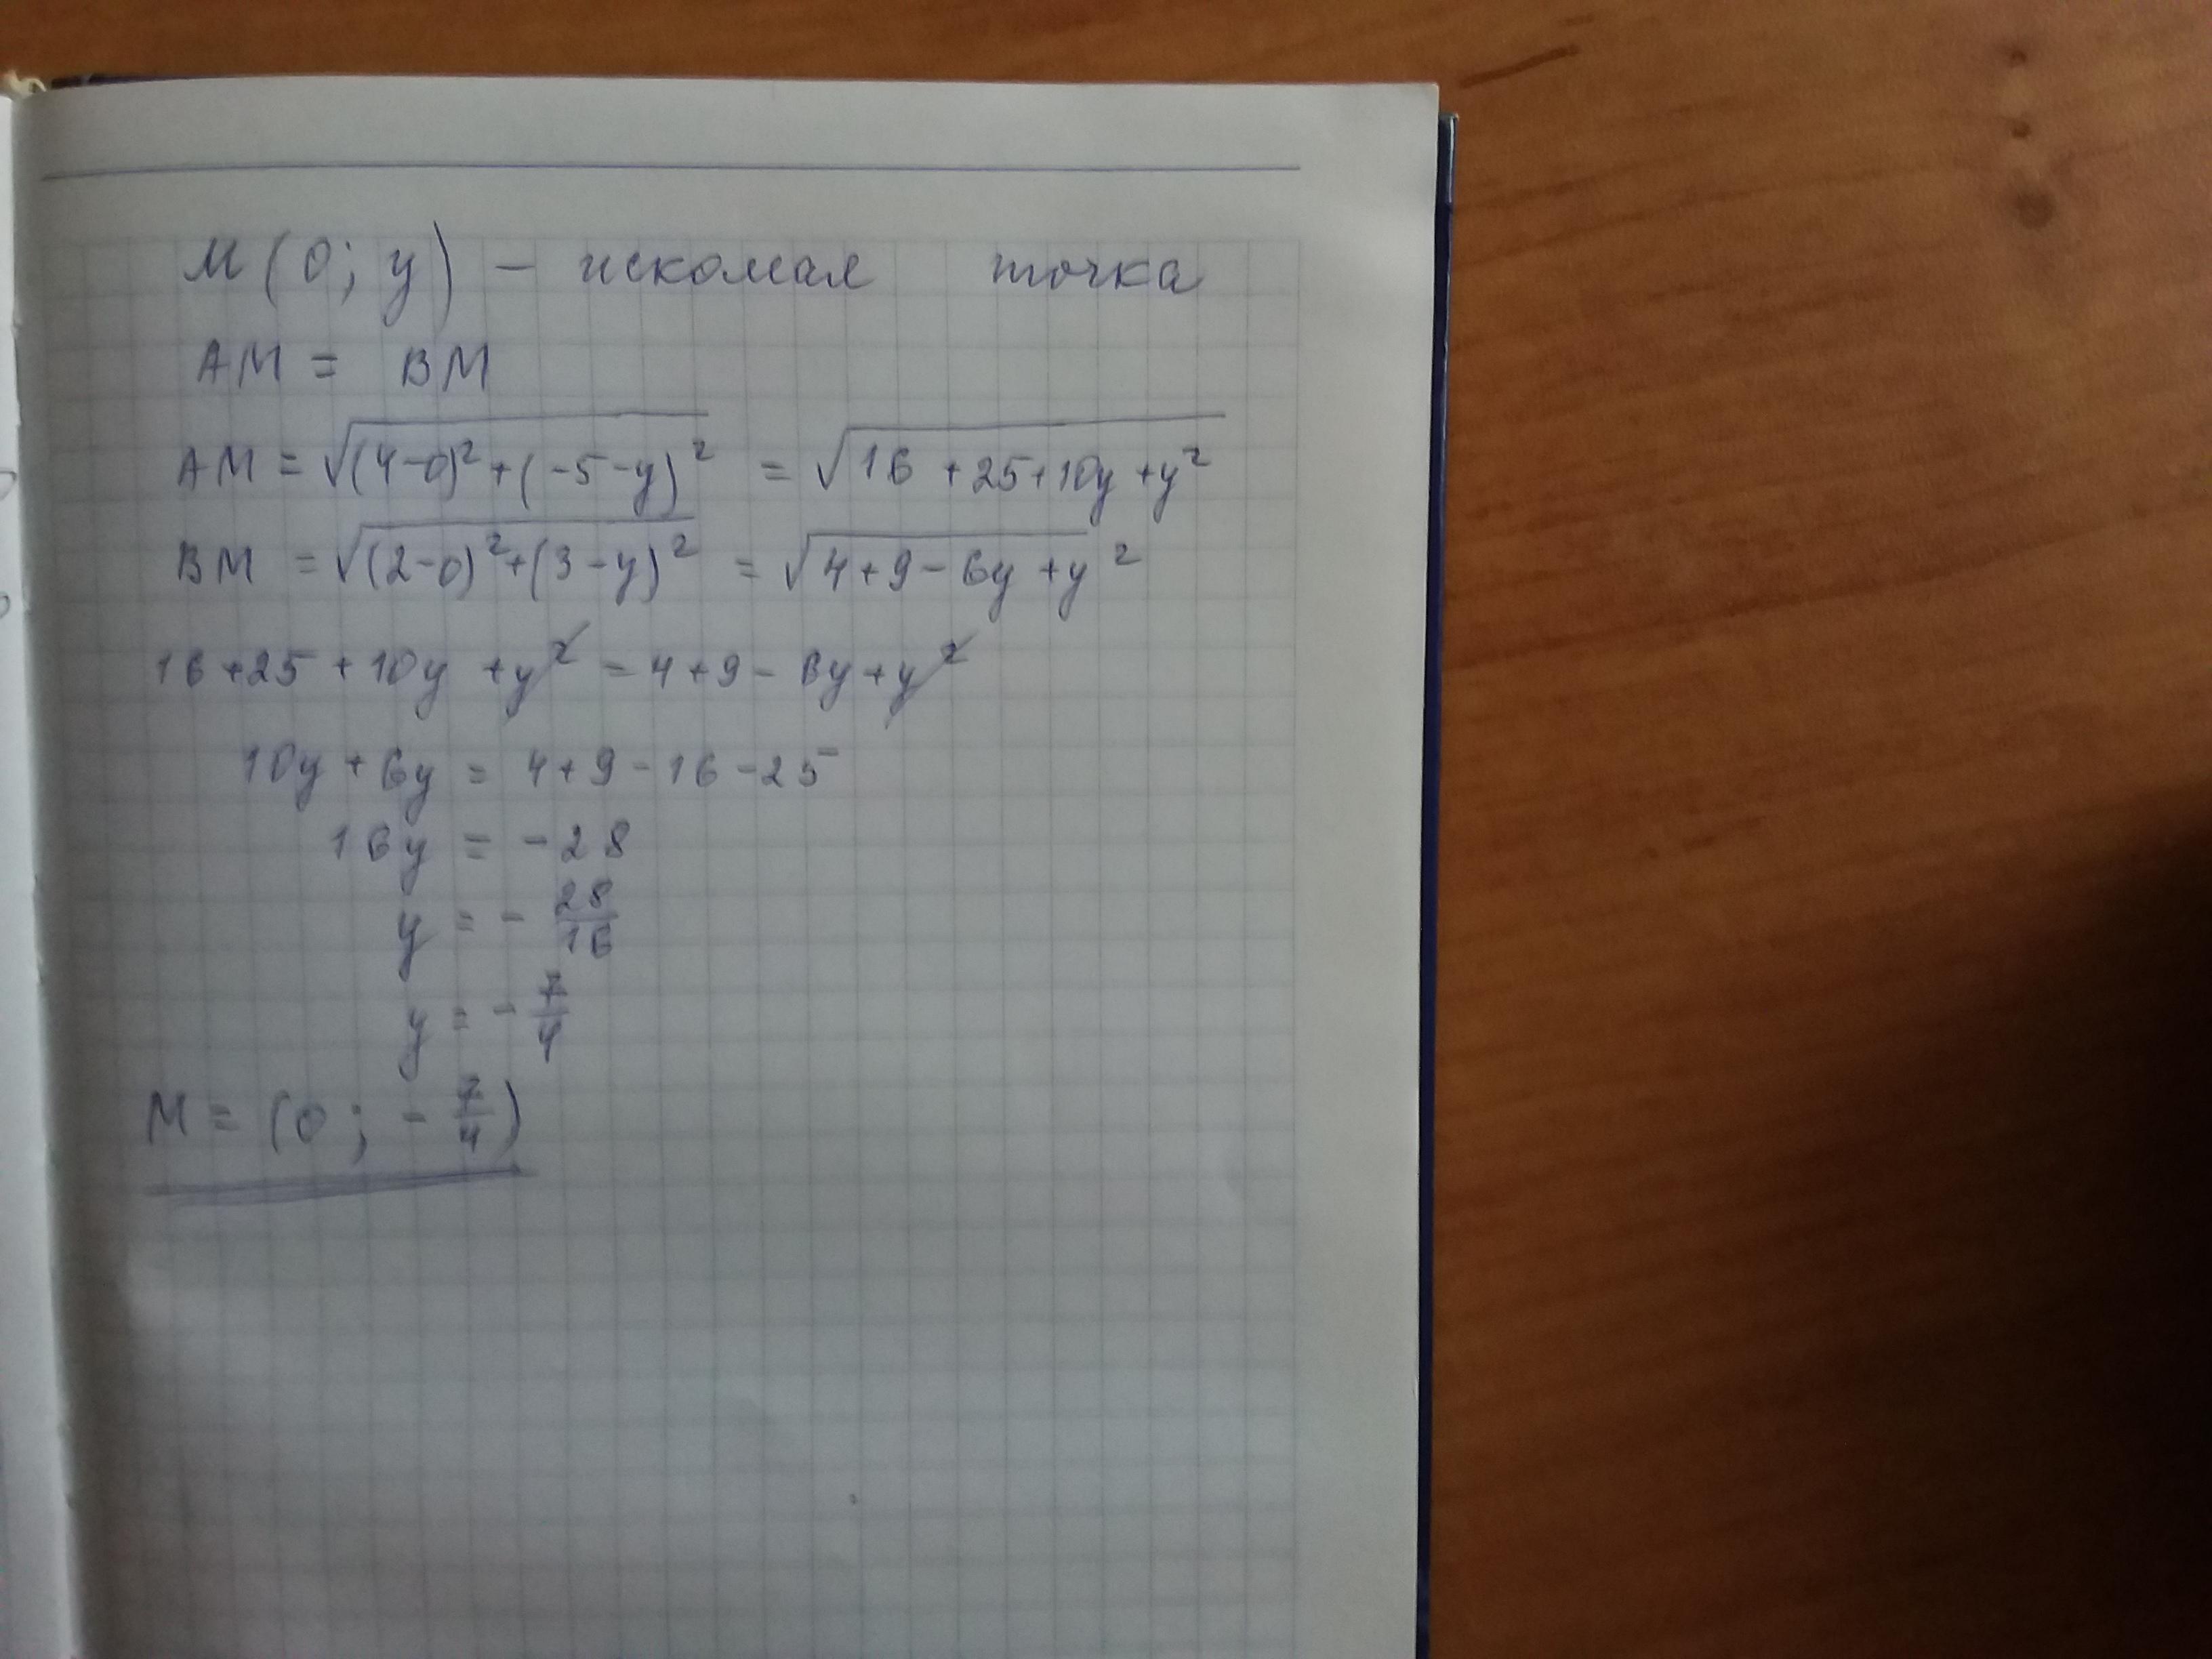 М(0; y) – искомая точка
AM = BM
AM = √(4-0)²+(-5-y)² = √16+25+10y+y²
BM = √(2-0)²+(3-y)² = √4+9-6y+y²
16+25+10y+y² = 4+9-6y+y²
10y+6y = 4+9-16-25
16y = -28
y = - 28/16
y = - 7/4
M = (0; - 7/4)